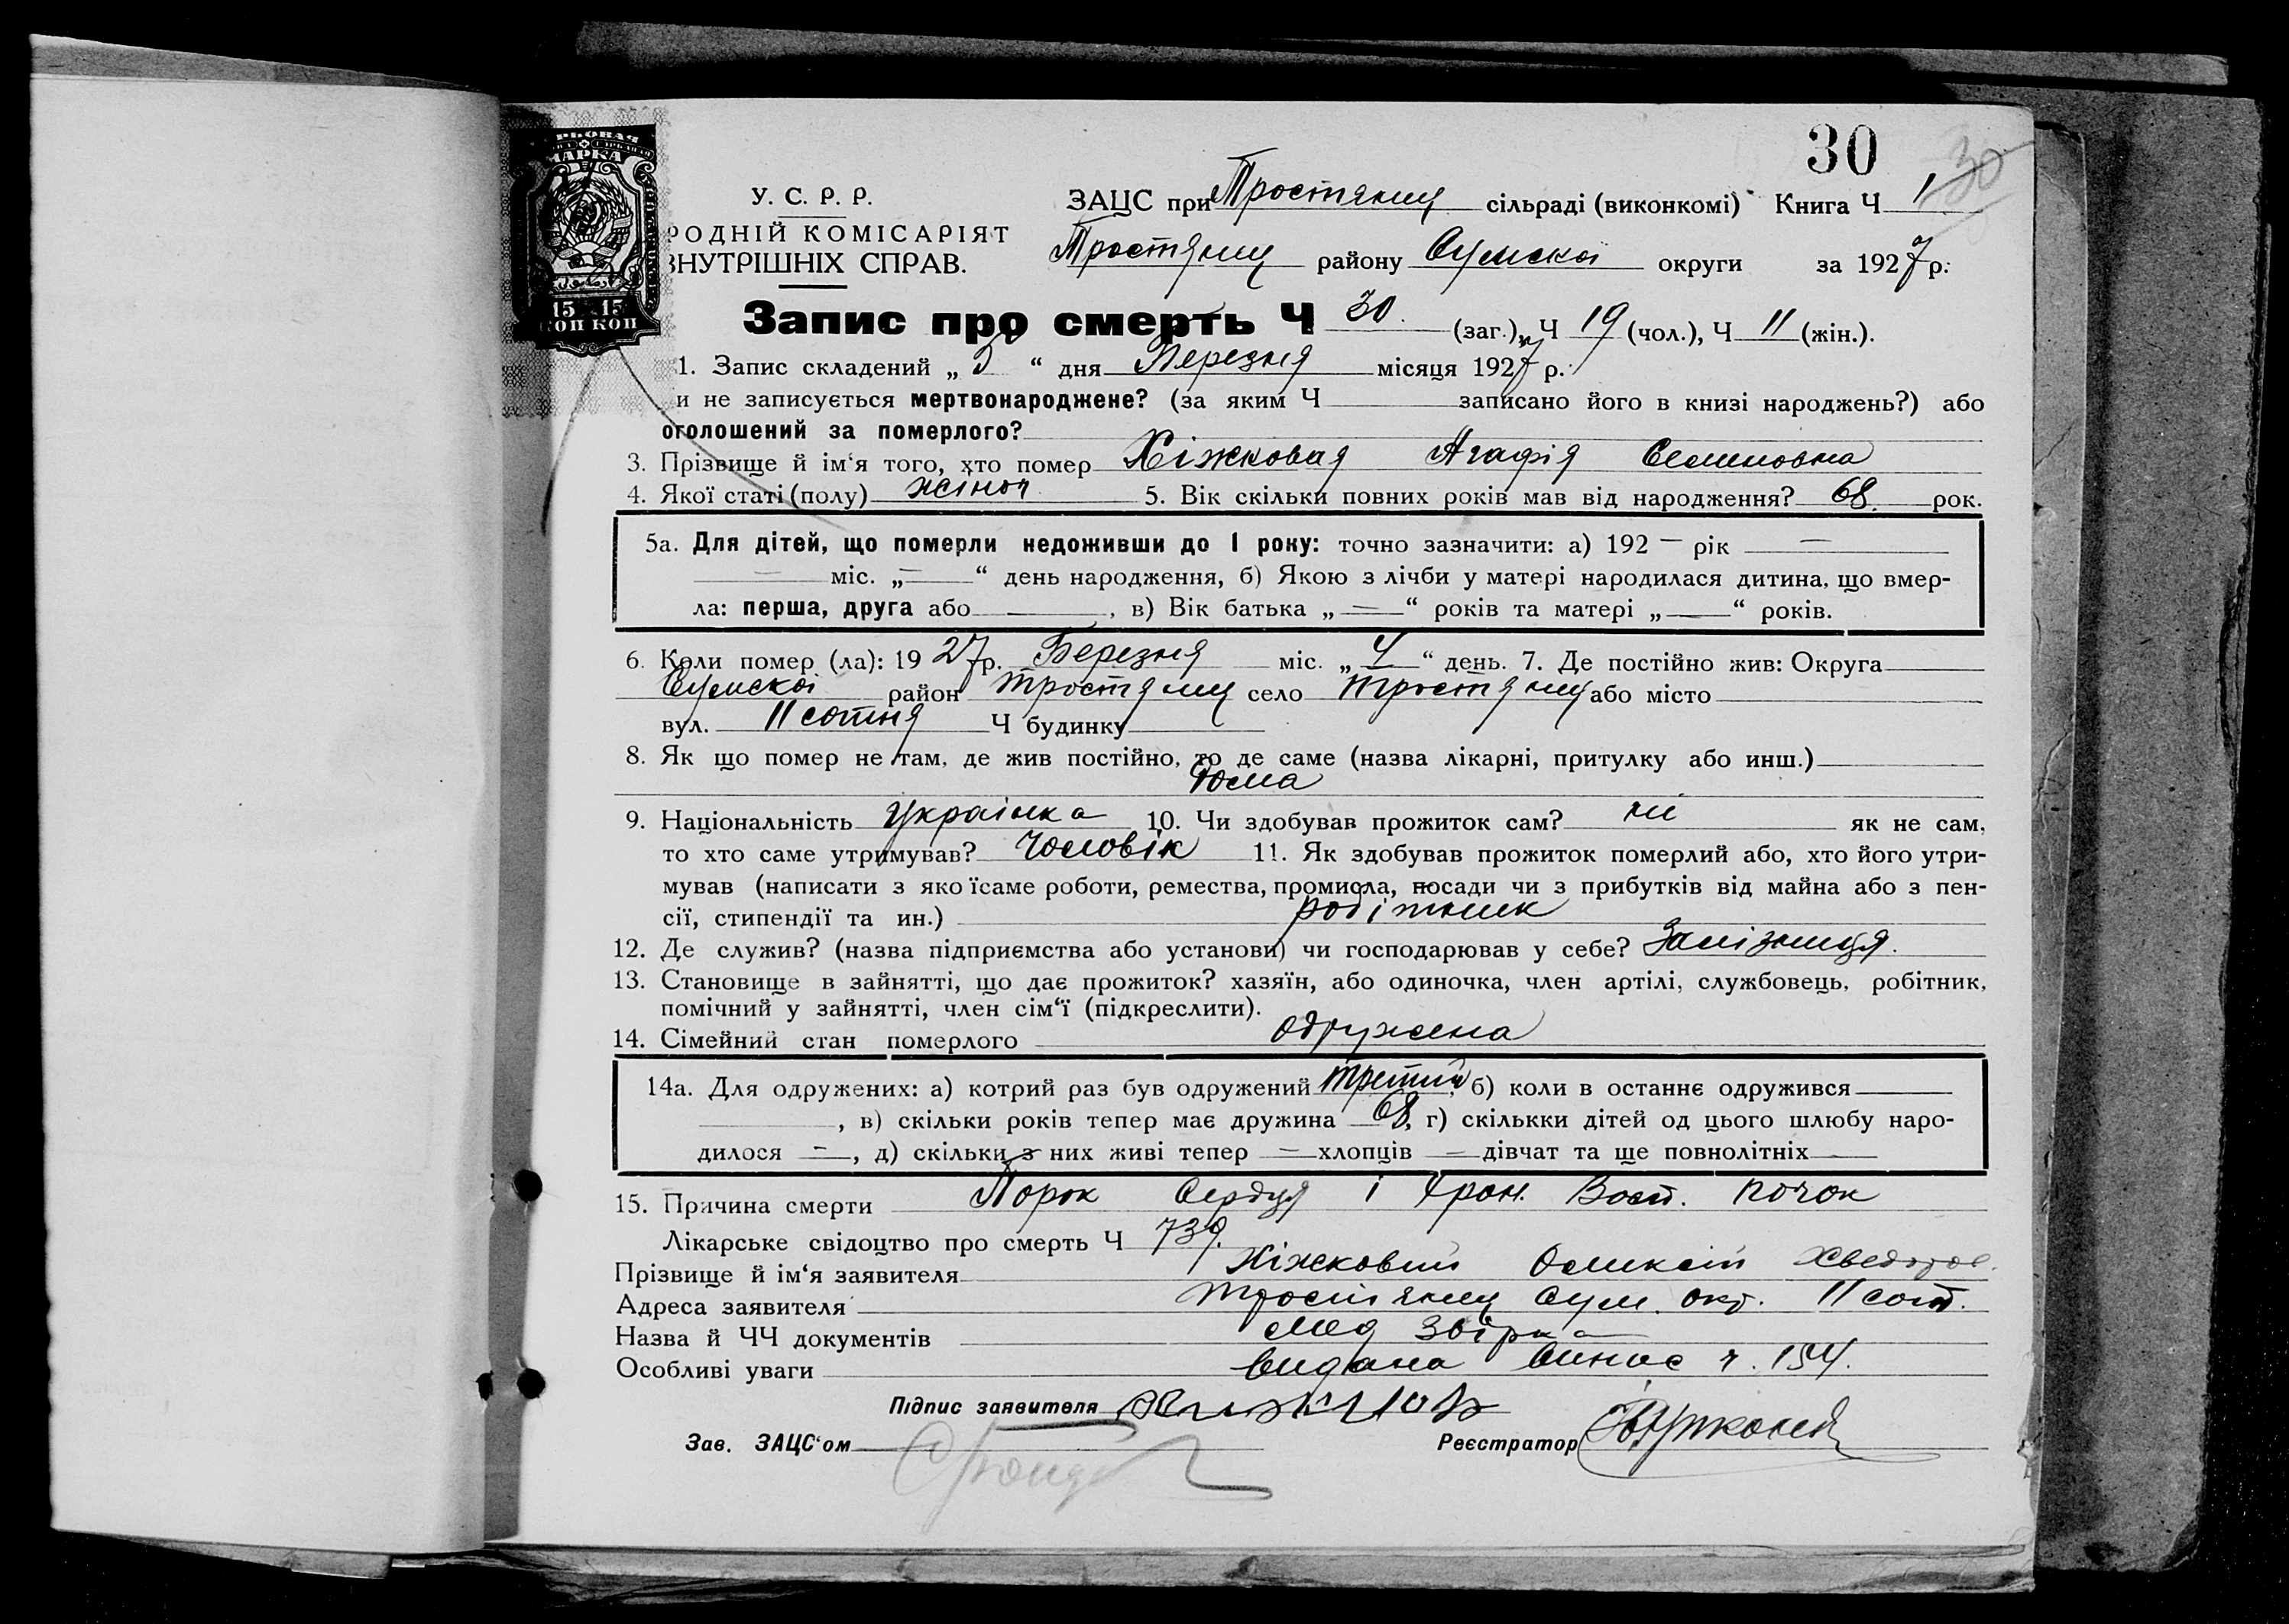 30 30
РЬОВАЯ
МАРКА
15 15
КОП КОП
У. С. Р. Р.
РОДНІЙ КОМІСАРІЯТ
ВНУТРІШНІХ СПРАВ.
ЗАЦС при Тростянец сільраді (виконкомі) Книга Ч 1
Тростянец району Сумскої округи за 1927 р.
Запис про смерть Ч 30 (заг.), Ч 19 (чол.), Ч 11 (жін.).
1. Запис складений „ 5 “ дня Березня місяця 1927 р.
и не записується мертвонароджене? (за яким Ч записано його в книзі народжень?) або
оголошений за померлого?
3. Прізвище й ім‘я того, хто помер Хіжковая Агафія Семеновна
4. Якої статі (полу) жіноч 5. Вік скільки повних років мав від народження? 68 рок.
5а. Для дітей, що померли недоживши до 1 року: точно зазначити: а) 192 — рік —
— міс. „—“ день народження, б) Якою з лічби у матері народилася дитина, що вмер-
ла: перша, друга або —, в) Вік батька „—“ років та матері „—“ років.
6. Коли помер (ла): 1927 р. Березня міс. „ 4 “ день. 7. Де постійно жив: Округа
Сумскої район Тростянец село Тростянец або місто
вул. 11 сотня Ч будинку
8. Як що помер не там, де жив постійно, то де саме (назва лікарні, притулку або инш.)
Дома
9. Національність Українка 10. Чи здобував прожиток сам? ні як не сам,
то хто саме утримував? Чоловік 11. Як здобував прожиток померлий або, хто його утри-
мував (написати з якоїсаме роботи, ремества, промисла, посади чи з прибутків від майна або з пен-
сії, стипендії та ин.) робітник
12. Де служив? (назва підприємства або установи) чи господарював у себе? Залізниця.
13. Становище в зайнятті, що дає прожиток? хазяїн, або одиночка, член артілі, службовець, робітник,
помічний у зайнятті, член сім‘ї (підкреслити).
14. Сімейний стан померлого одружена
14а. Для одружених: а) котрий раз був одружений третий, б) коли в останнє одружився
, в) скільки років тепер має дружина 68, г) скількки дітей од цього шлюбу наро-
дилося —, д) скільки з них живі тепер — хлопців — дівчат та ще повнолітніх —
15. Причина смерти Порок Сердця і Хрон. Восп. почок
Лікарське свідоцтво про смерть Ч 739.
Прізвище й ім‘я заявителя Хіжковий Олексій Хведоров.
Адреса заявителя Тростянец Сум. окр. 11 сот.
Назва й ЧЧ документів
Особливі уваги видана ч. 154.
Підпис заявителя
Зав. ЗАЦС‘ом
Реєстратор